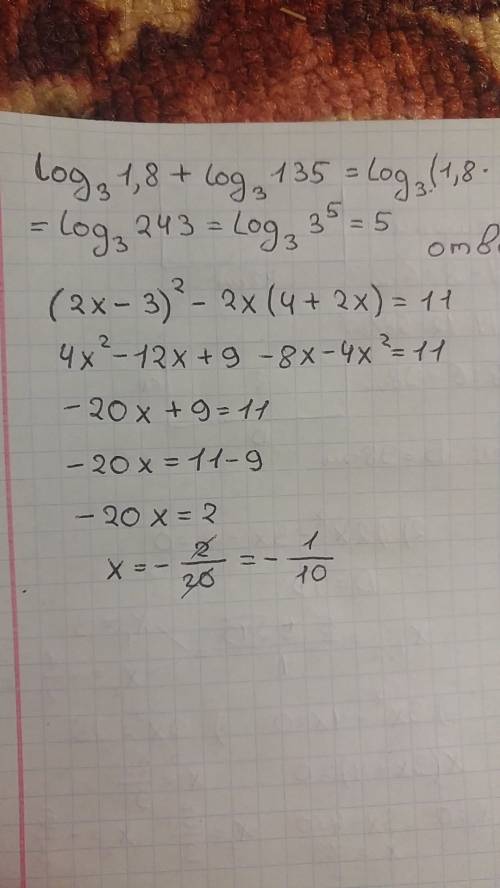 log₃1,8 + log₃135 = log₃(1,8·
= log₃243 = log₃3⁵ = 5
отв
(2x − 3)² − 2x(4 + 2x) = 11
4x² − 12x + 9 − 8x − 4x² = 11
−20x + 9 = 11
−20x = 11 − 9
−20x = 2
x = − 2/20 = − 1/10